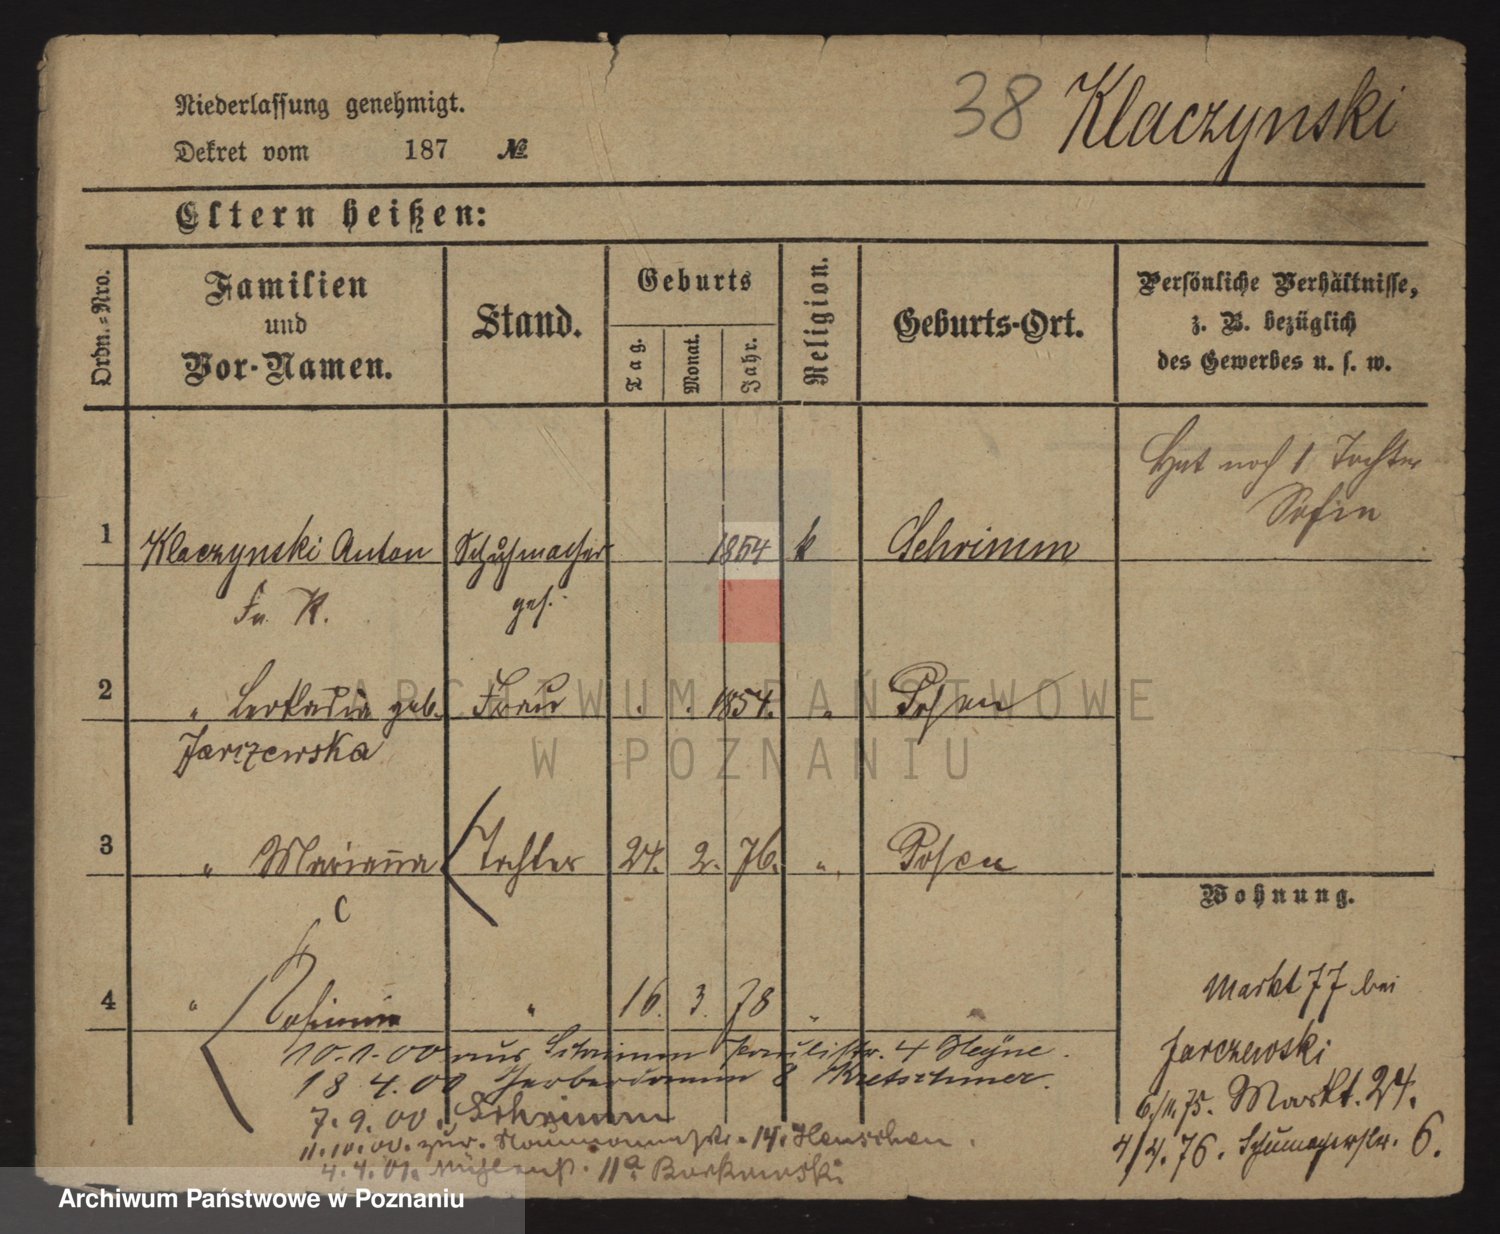 Niederlassung genehmigt.
Dekret vom 187 №
38 Klaczynski
Eltern heißen:
Ordn.-Nro.
Familien
und
Vor-Namen.
Stand.
Geburts
Tag.
Monat.
Jahr.
Religion.
Geburts-Ort.
Persönliche Verhältnisse,
z. B. bezüglich
des Gewerbes u. s. w.
Hat noch 1 Tochter
Sofia
1 Klaczynski Anton Schuhmacher 1854 k Schrimm
Fa. K. ges.
2 " Leokadia geb. Frau . . 1854. " Posen
Jarczewska
3 " Marianna Tochter 24. 2. 76. " Posen
C
4 " " 16. 3. 78 " "
Wohnung.
Markt 77 bei
Jarczewski
6/11.75. Markt. 24.
4/4.76. Schumacherstr. 6.
10.1.00 aus Schrimm Paulistr. 4 Heyne.
18 4.00 Gerberdamm 8 Kretschmer.
7.9.00. Schrimm
11.10.00. zur. Naumannstr. 14. Henschen.
4.4.01. Mühlenst. 11a Borkowski
ARCHIWUM PAŃSTWOWE
W POZNANIU
Archiwum Państwowe w Poznaniu